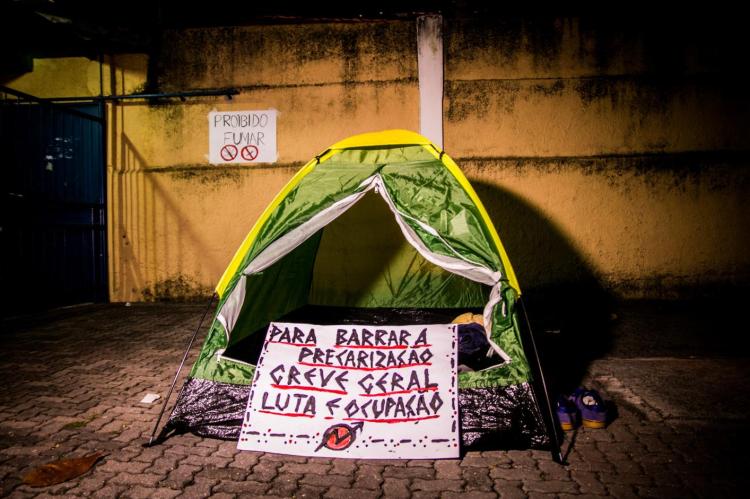 PROIBIDO
FUMAR
PARA BARRAR A
PRECARIZAÇÃO
GREVE GERAL
LUTA E OCUPAÇÃO